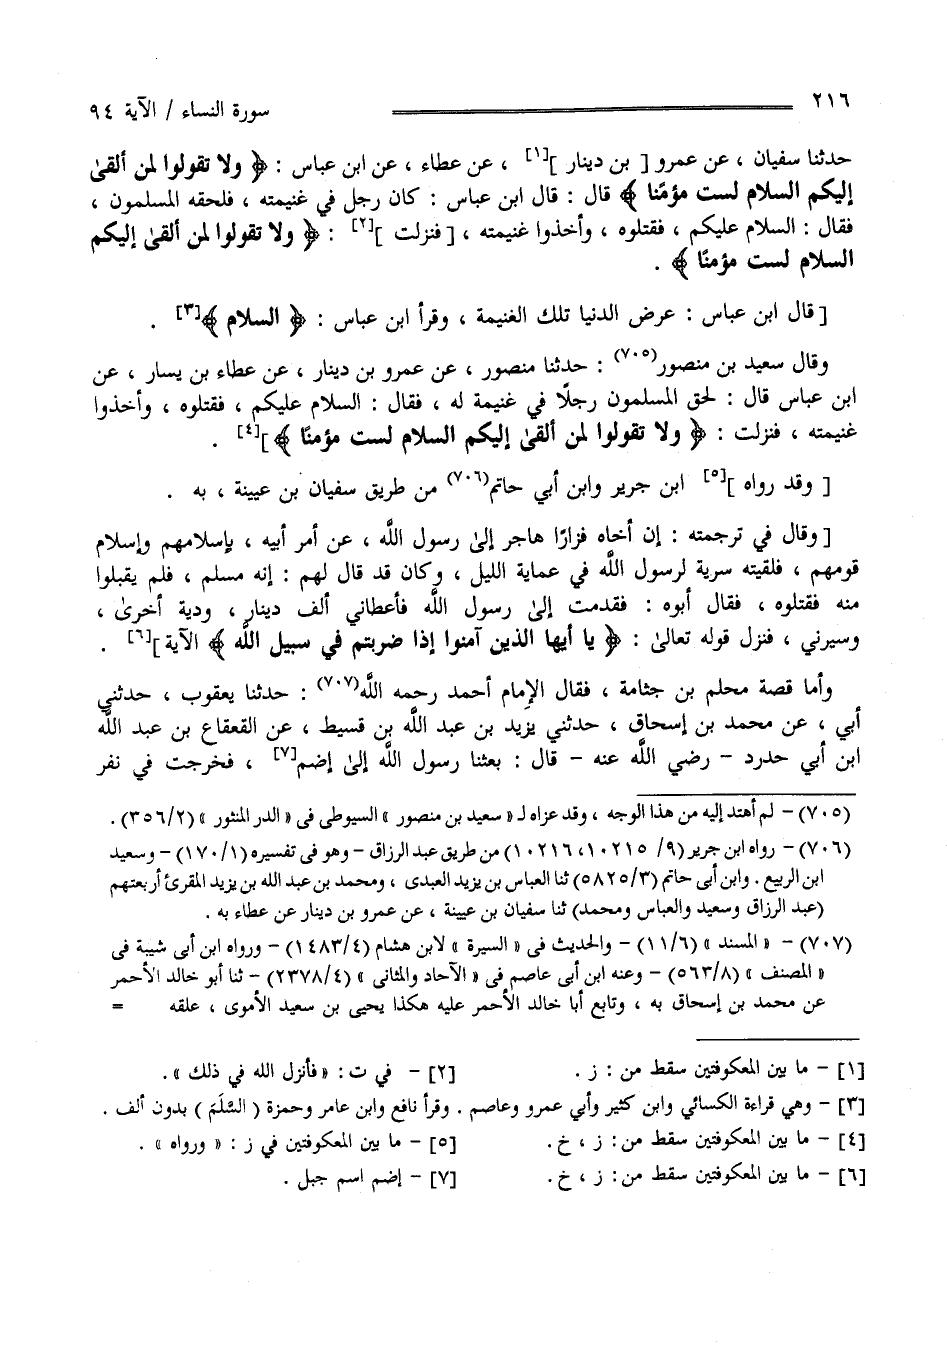 ٢١٦ سورة النساء / الآية ٩٤
حدثنا سفيان ، عن عمرو [ بن دينار ][١] ، عن عطاء ، عن ابن عباس : ﴿ ولا تقولوا لمن ألقىٰ
إليكم السلام لست مؤمنًا ﴾ قال : قال ابن عباس : كان رجل في غنيمته ، فلحقه المسلمون ،
فقال : السلام عليكم ، فقتلوه ، وأخذوا غنيمته ، [ فنزلت ][٢] : ﴿ ولا تقولوا لمن ألقىٰ إليكم
السلام لست مؤمنًا ﴾ .
[ قال ابن عباس : عرض الدنيا تلك الغنيمة ، وقرأ ابن عباس : ﴿ السلام ﴾[٣] .
وقال سعيد بن منصور(٧٠٥) : حدثنا منصور ، عن عمرو بن دينار ، عن عطاء بن يسار ، عن
ابن عباس قال : لحق المسلمون رجلًا في غنيمة له ، فقال : السلام عليكم ، فقتلوه ، وأخذوا
غنيمته ، فنزلت : ﴿ ولا تقولوا لمن ألقىٰ إليكم السلام لست مؤمنًا ﴾ ][٤] .
[ وقد رواه ][٥] ابن جرير وابن أبي حاتم(٧٠٦) من طريق سفيان بن عيينة ، به .
[ وقال في ترجمته : إن أخاه فزارًا هاجر إلىٰ رسول اللَّه ، عن أمر أبيه ، بإسلامهم وإسلام
قومهم ، فلقيته سرية لرسول اللَّه في عماية الليل ، وكان قد قال لهم : إنه مسلم ، فلم يقبلوا
منه فقتلوه ، فقال أبوه : فقدمت إلىٰ رسول اللَّه فأعطاني ألف دينار ، ودية أخرىٰ ،
وسيرني ، فنزل قوله تعالىٰ : ﴿ يا أيها الذين آمنوا إذا ضربتم في سبيل اللَّه ﴾ الآية ][٦] .
وأما قصة محلم بن جثامة ، فقال الإمام أحمد رحمه اللَّه(٧٠٧) : حدثنا يعقوب ، حدثني
أبي ، عن محمد بن إسحاق ، حدثني يزيد بن عبد اللَّه بن قسيط ، عن القعقاع بن عبد اللَّه
ابن أبي حدرد – رضي اللَّه عنه – قال : بعثنا رسول اللَّه إلىٰ إضم[٧] ، فخرجت في نفر
(٧٠٥) – لم أهتد إليه من هذا الوجه ، وقد عزاه لـ « سعيد بن منصور » السيوطى فى « الدر المنثور » (٣٥٦/٢) .
(٧٠٦) – رواه ابن جرير (٩/ ١٠٢١٥ ، ١٠٢١٦) من طريق عبد الرزاق – وهو فى تفسيره (١٧٠/١) – وسعيد
ابن الربيع . وابن أبى حاتم (٥٨٢٥/٣) ثنا العباس بن يزيد العبدى ، ومحمد بن عبد الله بن يزيد المقرئ أربعتهم
(عبد الرزاق وسعيد والعباس ومحمد) ثنا سفيان بن عيينة ، عن عمرو بن دينار عن عطاء به .
(٧٠٧) – « المسند » (١١/٦) – والحديث فى « السيرة » لابن هشام (١٤٨٣/٤) – ورواه ابن أبى شيبة فى
« المصنف » (٥٦٣/٨) – وعنه ابن أبى عاصم فى « الآحاد والمثانى » (٢٣٧٨/٤) – ثنا أبو خالد الأحمر
عن محمد بن إسحاق به ، وتابع أبا خالد الأحمر عليه هكذا يحيى بن سعيد الأموى ، علقه =
[١] – ما بين المعكوفتين سقط من : ز . [٢] – في ت : « فأنزل الله في ذلك » .
[٣] – وهي قراءة الكسائي وابن كثير وأبي عمرو وعاصم . وقرأ نافع وابن عامر وحمزة ( السَّلَمَ ) بدون ألف .
[٤] – ما بين المعكوفتين سقط من : ز ، خ . [٥] – ما بين المعكوفتين في ز : « ورواه » .
[٦] – ما بين المعكوفتين سقط من : ز ، خ . [٧] – إضم اسم جبل .